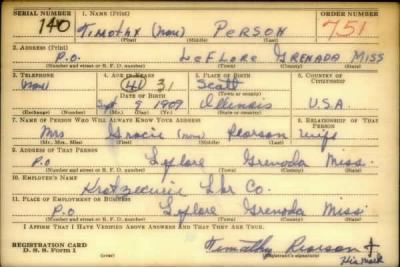 SERIAL NUMBER 1. NAME (Print) ORDER NUMBER
140 TIMOTHY (none) PERSON 751
(First) (Middle) (Last)
2. ADDRESS (Print)
P.O. LeFLORE GRENADA MISS
(Number and street or R. F. D. number) (Town) (County) (State)
3. TELEPHONE 4. AGE IN YEARS 5. PLACE OF BIRTH 6. COUNTRY OF CITIZENSHIP
(none) 41 31 Scott
DATE OF BIRTH (Town or county)
Sept 9 1909 Illinois U.S.A.
(Exchange) (Number) (Mo.) (Day) (Yr.) (State or country)
7. NAME OF PERSON WHO WILL ALWAYS KNOW YOUR ADDRESS 8. RELATIONSHIP OF THAT PERSON
Mrs Gracie (none) Pearson wife
(Mr., Mrs., Miss) (First) (Middle) (Last)
9. ADDRESS OF THAT PERSON
P.O Leflore Grenada Miss.
(Number and street or R. F. D. number) (Town) (County) (State)
10. EMPLOYER'S NAME
Lbr Co.
11. PLACE OF EMPLOYMENT OR BUSINESS
P.O Leflore Grenada Miss
(Number and street or R. F. D. number) (Town) (County) (State)
I AFFIRM THAT I HAVE VERIFIED ABOVE ANSWERS AND THAT THEY ARE TRUE.
REGISTRATION CARD
D. S. S. Form 1
Timothy Pearson +
(Registrant's signature)
His mark